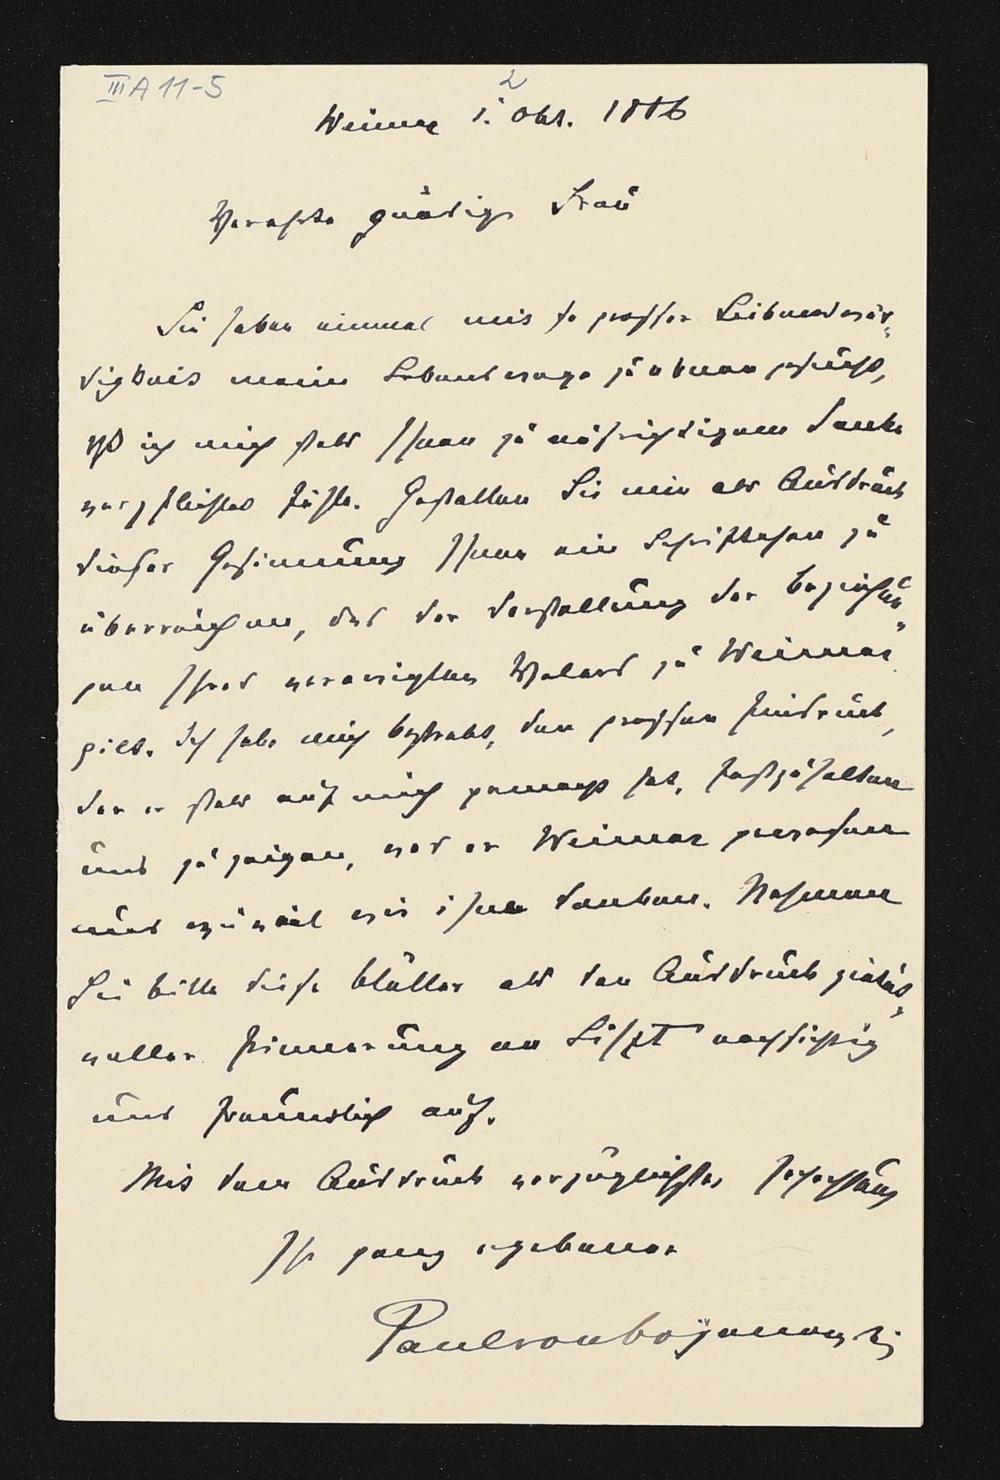 III A 11-5
2
Weimar 1. Okt. 1886
Verehrte gnädige Frau
Sie haben einmal mit so großer Liebenswür-
digkeit meine Lebenswege zu ebnen gesucht,
daß ich mich stets Ihnen zu aufrichtigem Danke
verpflichtet fühle. Gestatten Sie mir als Ausdruck
dieser Gesinnung Ihnen ein Schriftchen zu
überreichen, das der Darstellung der Beziehun-
gen Ihres verewigten Vaters zu Weimar
gilt. Ich habe mich bestrebt, den großen Eindruck,
den er stets auf mich gemacht hat, festzuhalten
und zu zeigen, was er Weimar gewesen
und wieviel wir ihm danken. Nehmen
Sie bitte diese Blätter als den Ausdruck pietät-
voller Erinnerung an Liszt nachsichtig
und freundlich auf.
Mit dem Ausdruck vorzüglichster Hochachtung
Ihr ganz ergebener
Paul von Bojanowski